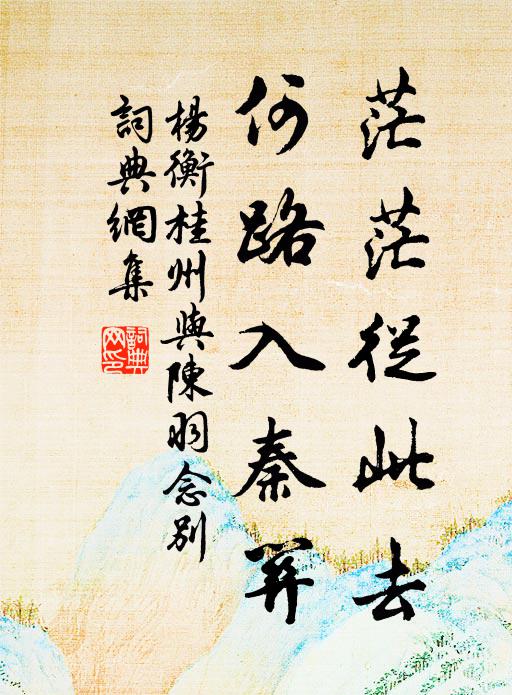 茫茫從此去
何路入秦關
楊衡桂州與陳羽念別
詞典網集
詞典网印